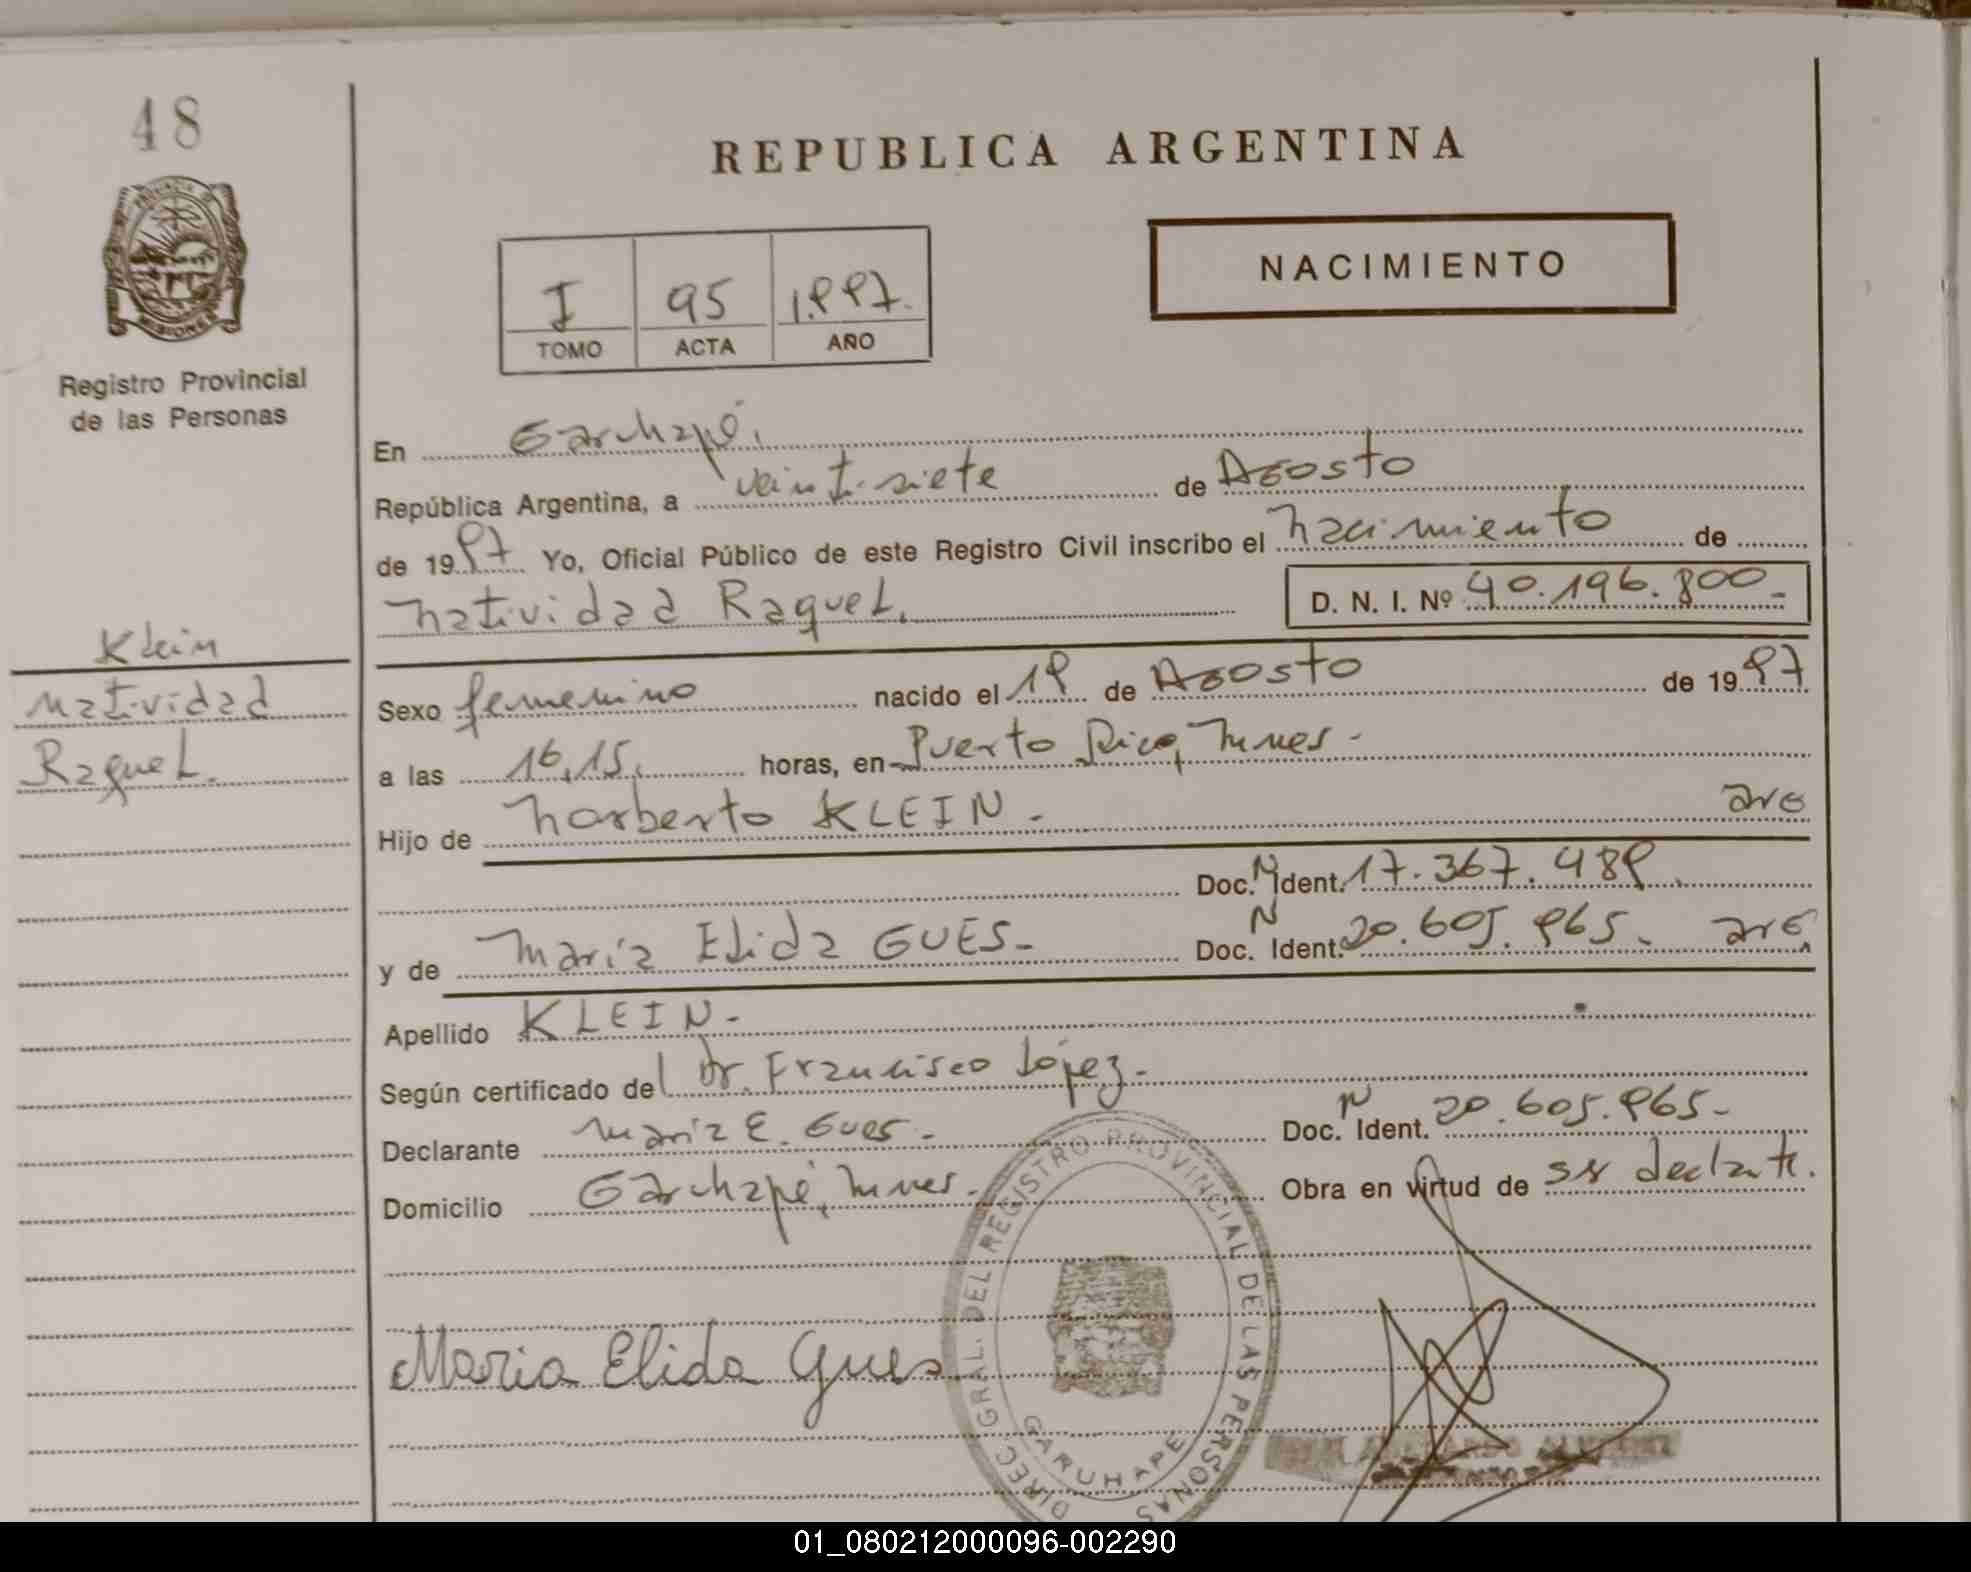 48
REPUBLICA ARGENTINA
NACIMIENTO
PROVINCIA DE
MISIONES
I 95 1.997.
TOMO ACTA AÑO
Registro Provincial
de las Personas
En Garuhapé.
República Argentina, a veintisiete de Agosto
de 1997 Yo, Oficial Público de este Registro Civil inscribo el nacimiento de
Natividad Raquel. D. N. I. Nº 40.196.800.-
Klein
Natividad
Raquel.
Sexo femenino nacido el 19 de Agosto de 1997
a las 16,15, horas, en Puerto Rico, Mnes.-
Hijo de Norberto KLEIN.- arg
Doc. N Ident. 17.367.489.
y de María Elida GUES.- Doc. N Ident. 20.605.965. arg
Apellido KLEIN.-
Según certificado del Dr. Francisco López.-
Declarante María E. Gues.- Doc. N Ident. 20.605.965.-
Domicilio Garuhapé, Mnes.- Obra en virtud de ser declante.
Maria Elida Gues
DIREC. GRAL. DEL REGISTRO PROVINCIAL DE LAS PERSONAS
GARUHAPE
01_080212000096-002290